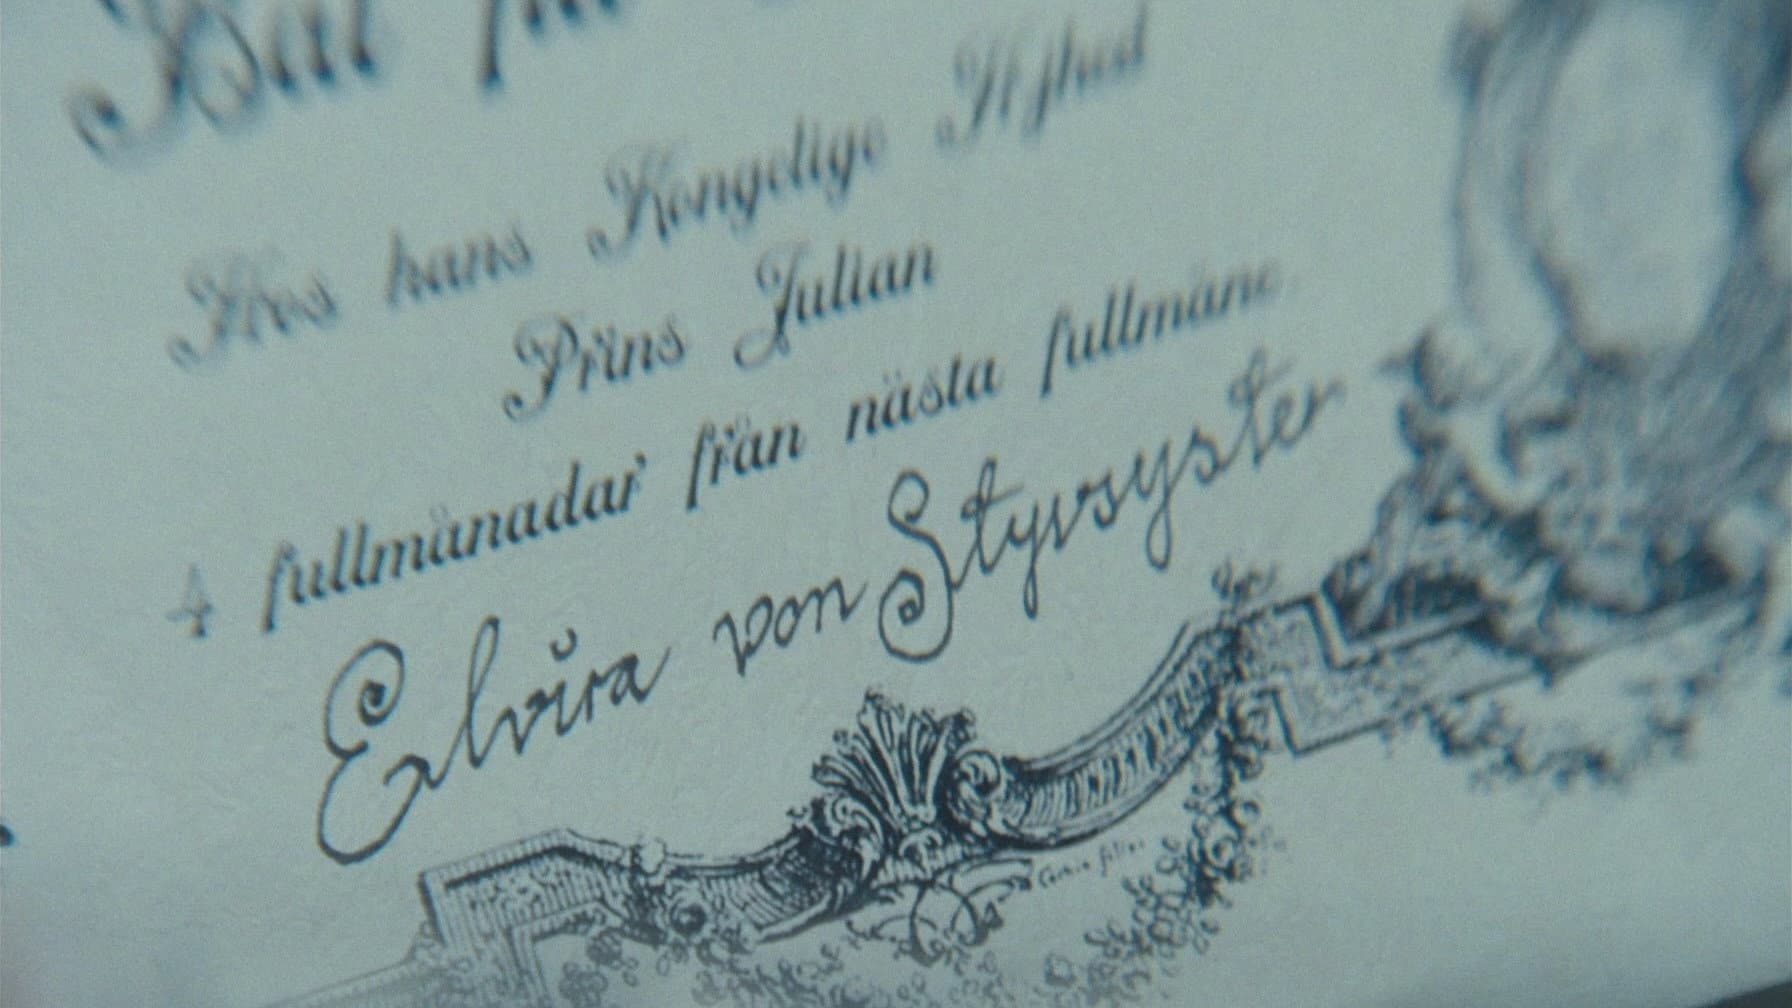 Bal för
Hos hans Kongelige Höjhed
Prins Julian
4 fullmånadar från nästa fullmåne.
Elvira von Styvsyster